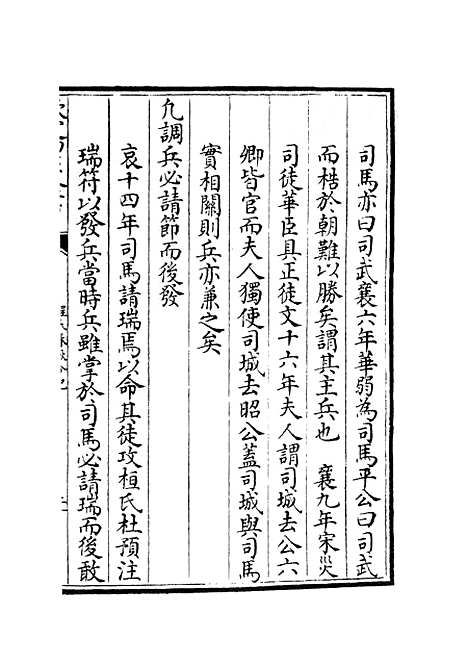 司馬亦曰司武襄六年華弱為司馬平公曰司武
而梏於朝難以勝矣謂其主兵也　襄九年宋災
司徒華臣具正徒文十六年夫人謂司城去公六
卿皆官而夫人獨使司城去昭公蓋司城與司馬
實相關則兵亦兼之矣
凡調兵必請節而後發
哀十四年司馬請瑞焉以命其徒攻桓氏杜預注
瑞符以發兵當時兵雖掌於司馬必請瑞而後敢